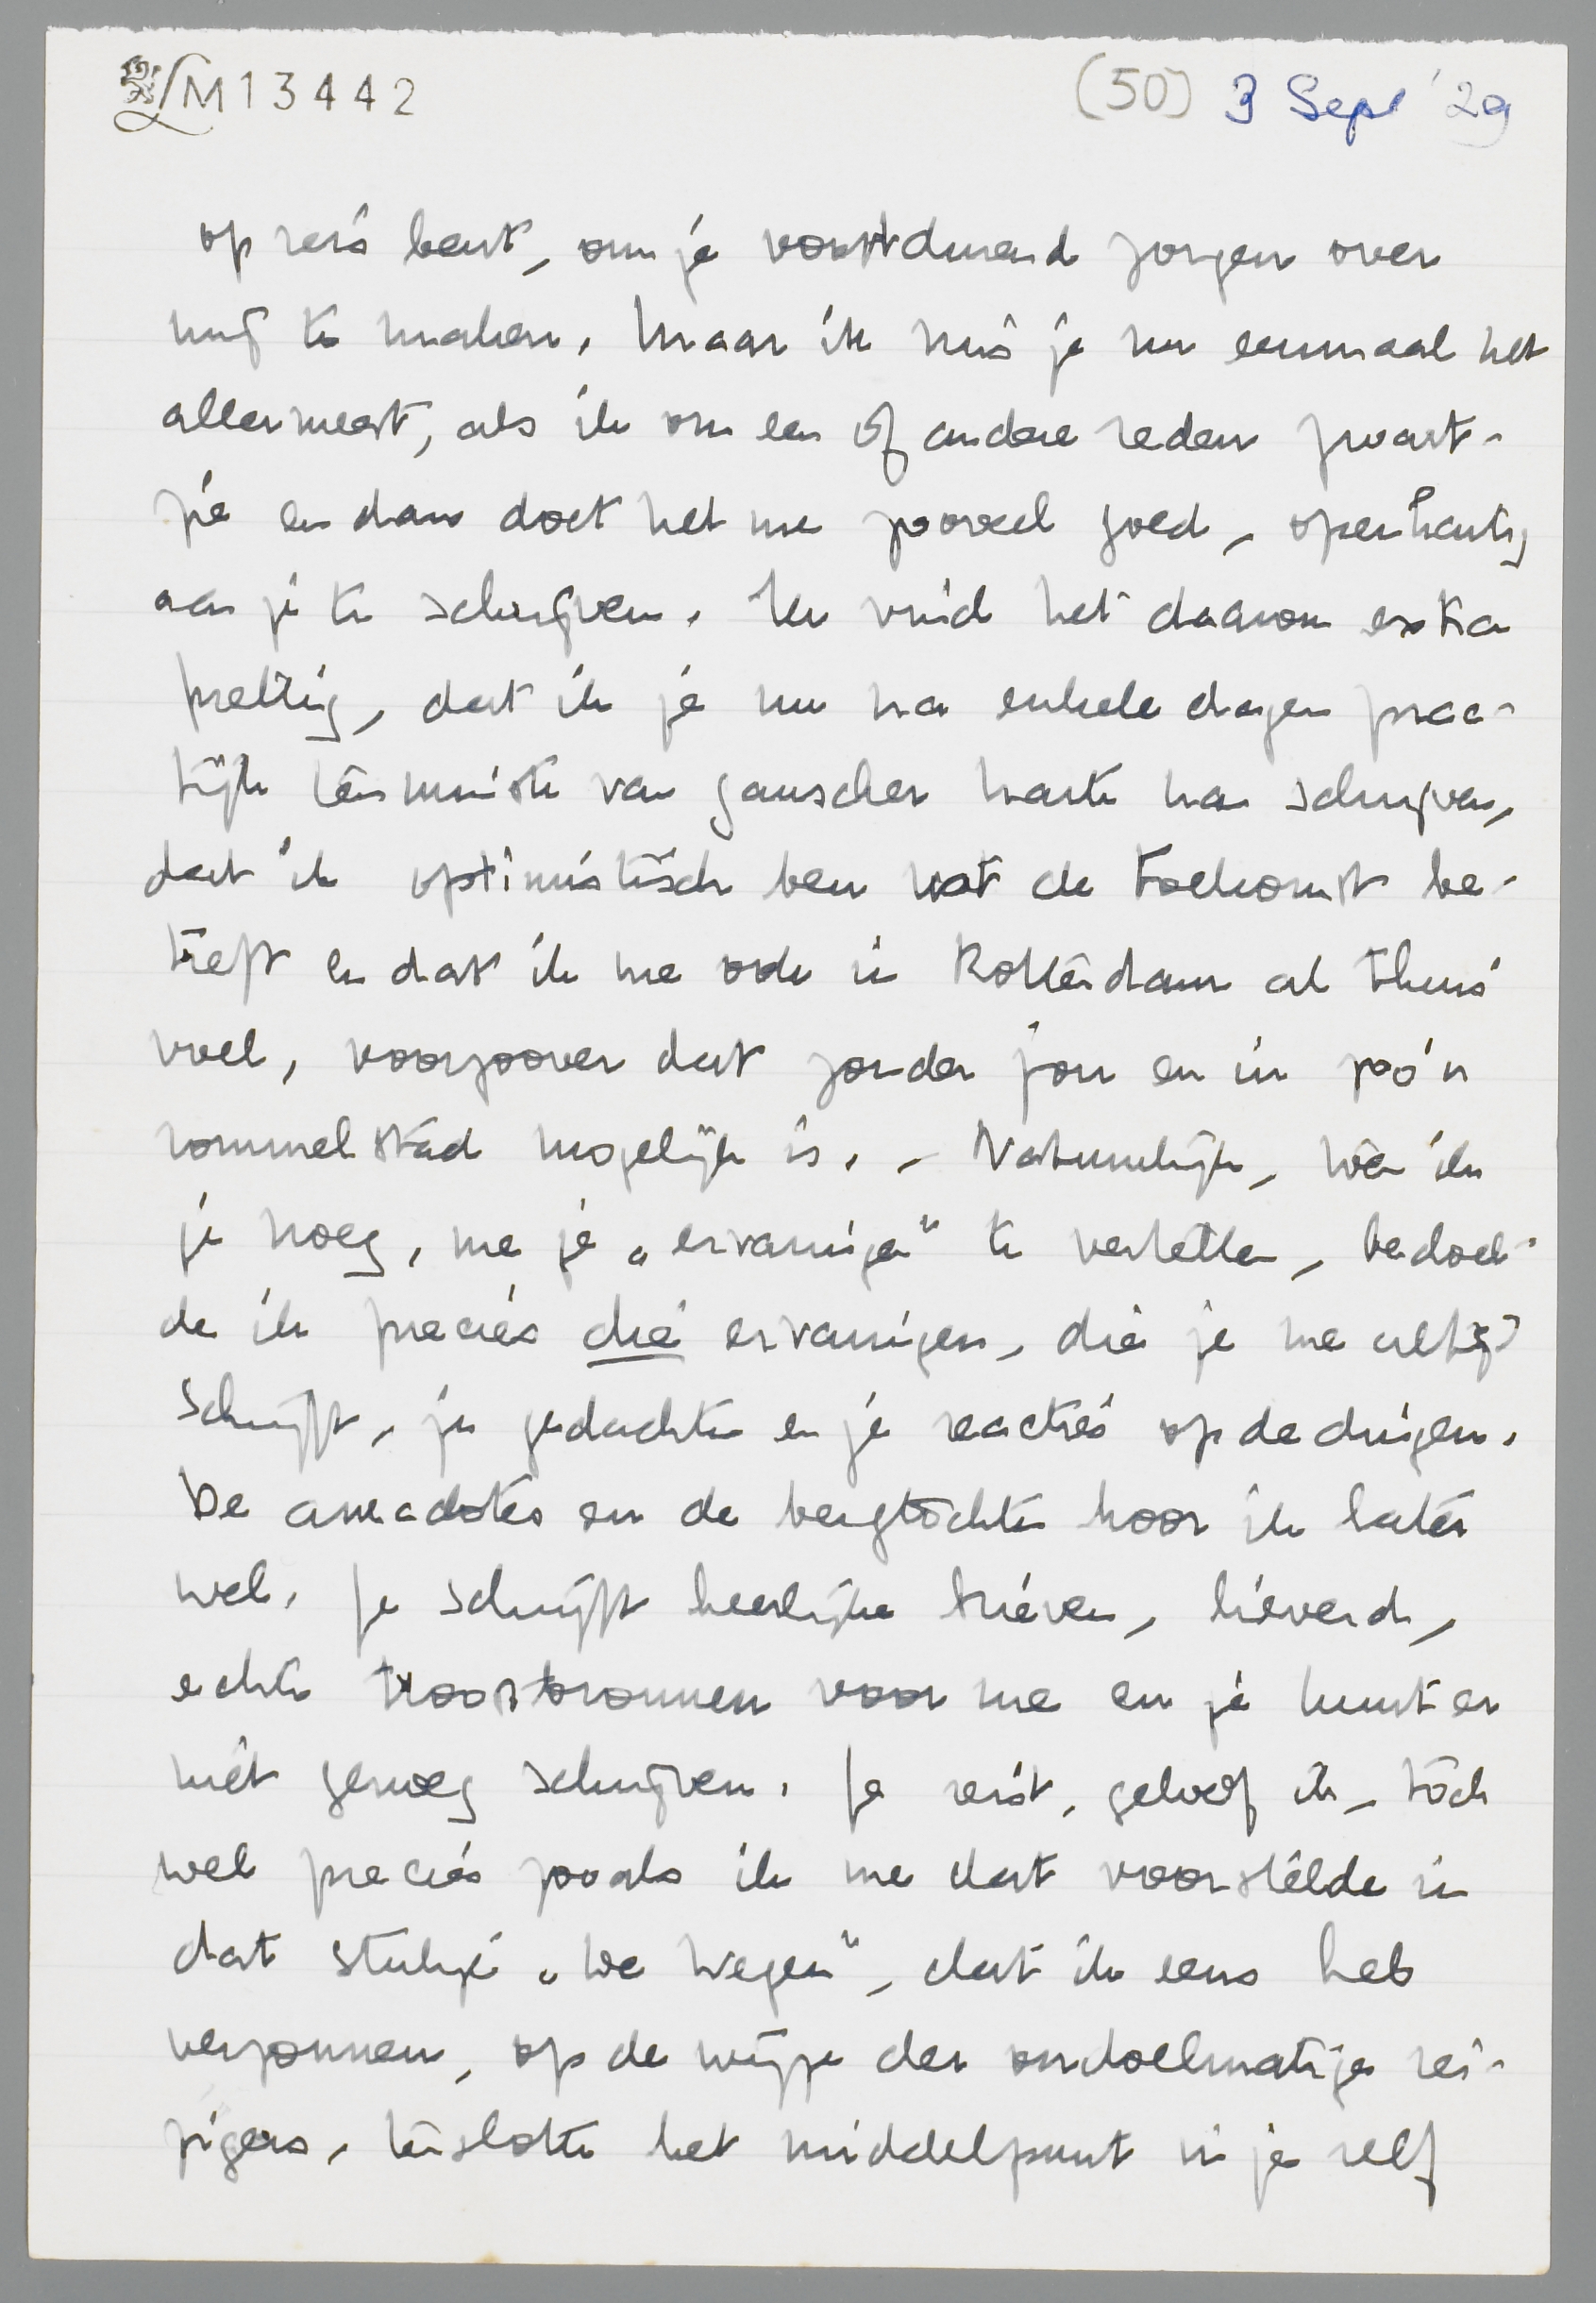 LM13442
(50) 3 Sept '29
op reis bent, om je voortdurend zorgen over
mij te maken. Maar ik mis je nu eenmaal het
allermeest, als ik om een of andere reden zwart-
zie en dan doet het me zooveel goed, openhartig
aan je te schrijven. Ik vind het daarom extra
prettig, dat ik je nu na enkele dagen prac-
tijk tenminste van ganscher harte kan schrijven,
dat ik optimistisch ben wat de toekomst be-
treft en dat ik me ook in Rotterdam al thuis
voel, voorzoover dat zonder jou en in zoo'n
rommelstad mogelijk is. - Natuurlijk, toen ik
je vroeg, me je „ervaringen" te vertellen, bedoel-
de ik precies die ervaringen, die je me altijd
schrijft, je gedachten en je reacties op de dingen.
De anecdotes en de bergtochten hoor ik later
wel. Je schrijft heerlijke brieven, lieverd,
echte troostbronnen voor me en je kunt er
niet genoeg schrijven. Je reist, geloof ik, toch
wel precies zooals ik me dat voorstelde in
dat stukje „De wegen", dat ik eens heb
verzonnen, op de wijze der ondoelmatige rei-
zigers, tenslotte het middelpunt in je zelf